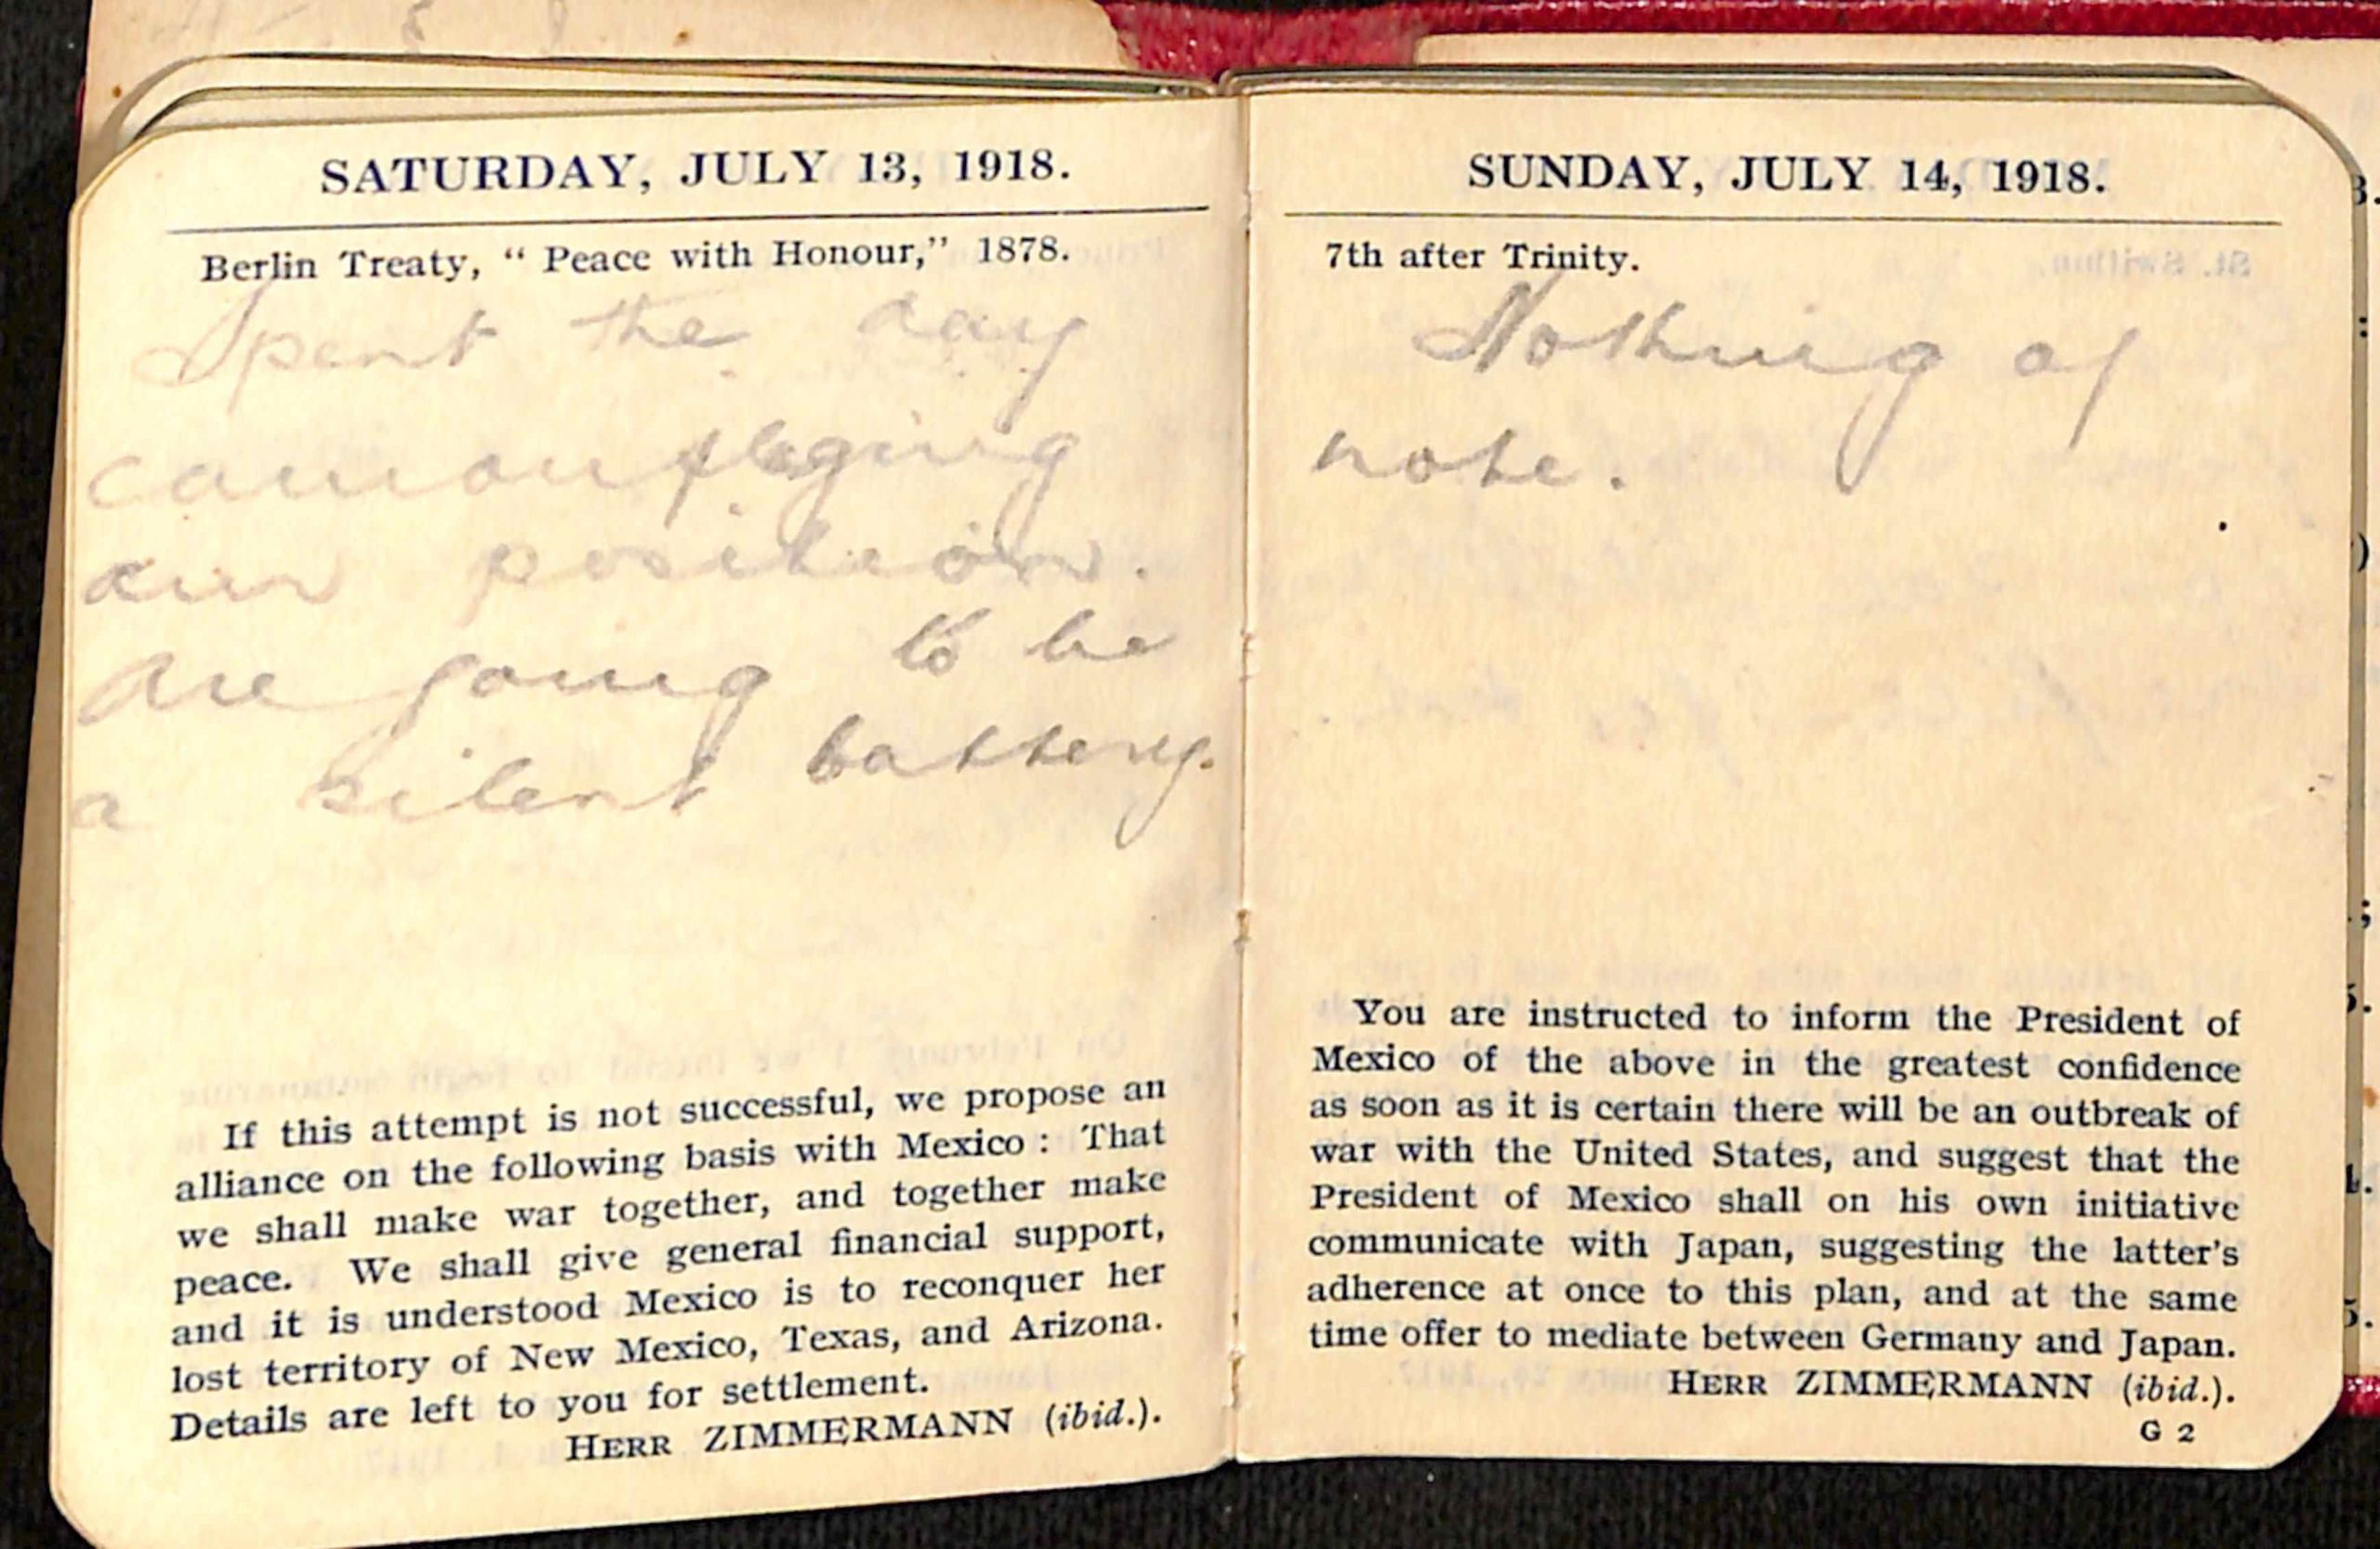 SATURDAY, JULY 13, 1918.
Berlin Treaty, “ Peace with Honour,” 1878.
Spent the day
camouflaging
our position.
Are going to be
a silent battery.
If this attempt is not successful, we propose an
alliance on the following basis with Mexico : That
we shall make war together, and together make
peace. We shall give general financial support,
and it is understood Mexico is to reconquer her
lost territory of New Mexico, Texas, and Arizona.
Details are left to you for settlement.
HERR ZIMMERMANN (ibid.).
SUNDAY, JULY 14, 1918.
7th after Trinity.
Nothing of
note.
You are instructed to inform the President of
Mexico of the above in the greatest confidence
as soon as it is certain there will be an outbreak of
war with the United States, and suggest that the
President of Mexico shall on his own initiative
communicate with Japan, suggesting the latter’s
adherence at once to this plan, and at the same
time offer to mediate between Germany and Japan.
HERR ZIMMERMANN (ibid.).
G 2